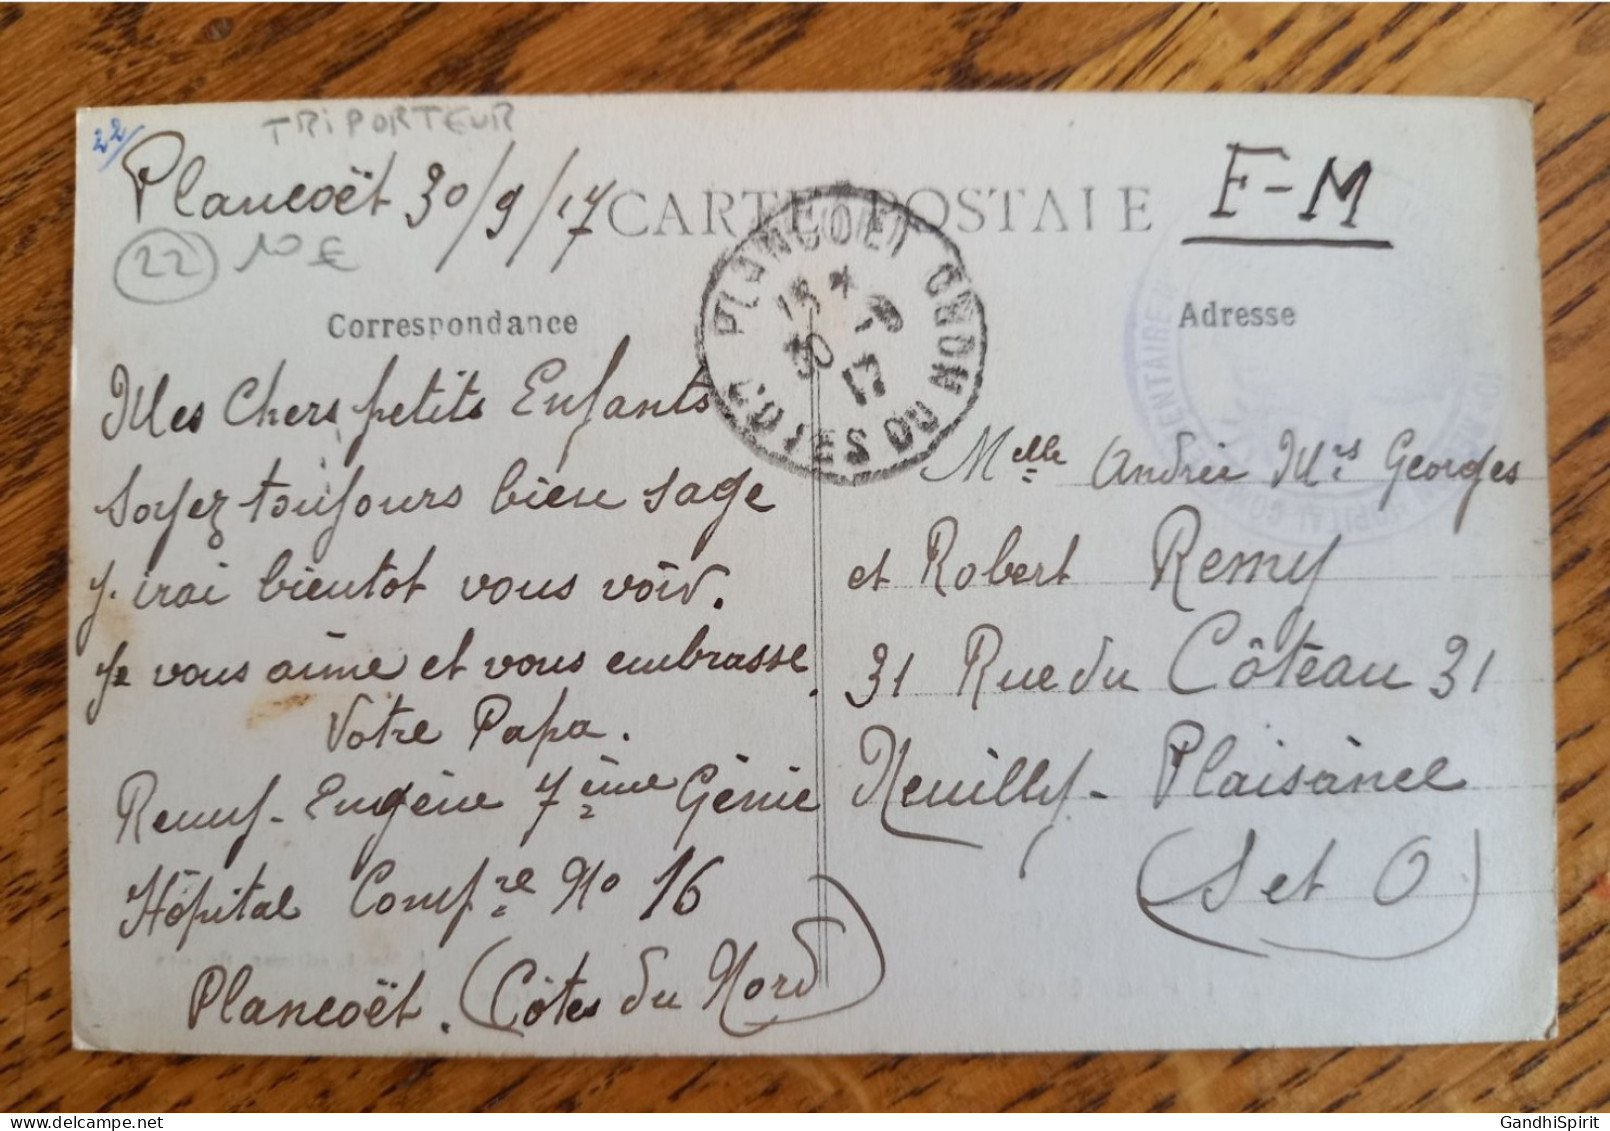 22
TRIPORTEUR
Plancoët 30/9/17
22 10 €
CARTE POSTALE
F-M
Correspondance
Adresse
PLANCOET
CÔTES DU NORD
30 17
HOPITAL
Mes Chers petits Enfants
Soyez toujours bien sage
J. irai bientot vous voir.
Je vous aime et vous embrasse.
Votre Papa.
Remy-Eugène 7ème Génie
Hôpital Compre No 16
Plancoët. (Côtes du Nord)
Melle Andrée Mrs Georges
et Robert Remy
31 Rue du Côteau 31
Neuilly-Plaisance
(S et O)
GandhiSpirit